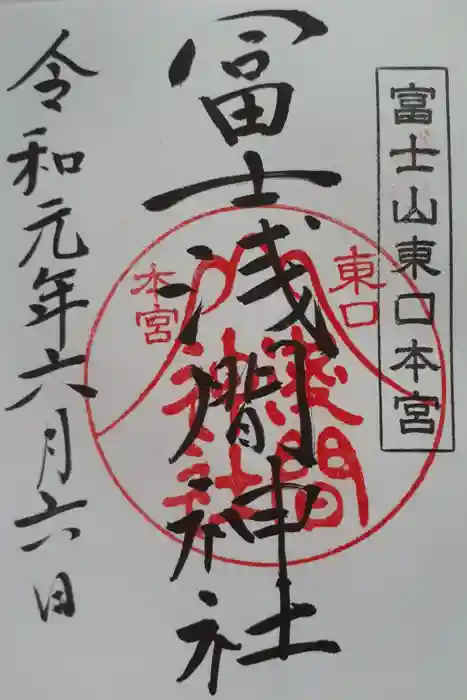 富士山東口本宮
冨士浅間神社
東口
本宮
浅間
神社
令和元年六月六日